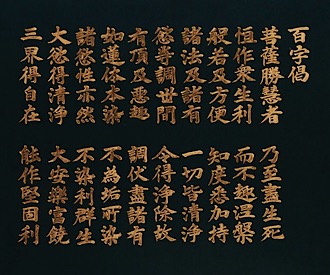 百字偈
菩薩勝慧者
乃至盡生死
恒作衆生利
而不趣涅槃
般若及方便
智度悉加持
諸法及諸有
一切皆清浄
慾等調世間
令得浄除故
有頂及惡趣
調伏盡諸有
如蓮体本染
不為垢所染
諸慾性亦然
不染利群生
大慾得清浄
大安樂富饒
三界得自在
能作堅固利